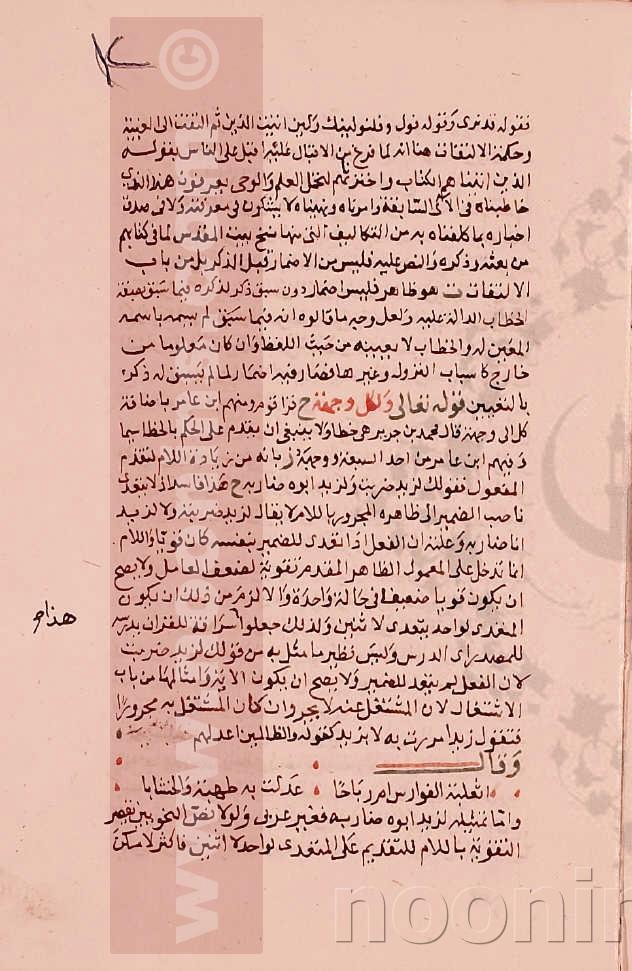 فقوله قد نرى وقوله فول و فلنولينك ولئن اتيت الذين ثم التفت الى الغيبة
وحكمة الالتفات هنا انه لما فرغ من الاقبال عليه اقبل على الناس بقوله
الذين اتيناهم الكتاب واخترناهم لتحمل العلم والوحى يعرفون هذا الذى
خاطبناه فى الآى السابقة وامرناه ونهيناه لا يشكون فى معرفته ولا فى صدق
اخباره بما كلفناه به من التكاليف التى منها نسخ بيت المقدس لما فى كتابهم
من بعثه وذكره والنص عليه فليس من الاضمار قبل الذكر بل من باب
الالتفات ت هو ظاهر فليس اضمار دون سبق ذكر لذكره فيما سبق بصيغة
الخطاب الدالة عليه ولعل وجه ما قالوه انه فيما سبق لم يسمه باسمه
المعين له والخطاب لا يعينه من حيث اللفظ وان كان معلوما من
خارج كاسباب النزول وغيرها فصار فيه اضمار لما لم يسبق له ذكر
بالتعيين قوله تعالى ولكل وجهة ح قرا قوم ومنهم ابن عامر باضافة
كل الى وجهة قال محمد بن جرير هى خطا ولا ينبغى ان يقدم على الحكم بالخطا سيما
وفيهم ابن عامر من احد السبعة ووجهه ز بانه من زيادة اللام لتقدم
المفعول فقولك لزيد ضربت ولزيد ابوه ضاربه ح هذا فاسد اذ لا يتعدى
ناصب الضمير الى ظاهره المجرور باللام لا يقال لزيد ضربته ولا لزيد
انا ضاربه وعلته ان الفعل اذا تعدى للضمير بنفسه كان قويا واللام
انما تدخل على المعمول الظاهر المقدم تقوية لضعف العامل ولا يصح
ان يكون قويا ضعيفا فى حالة واحدة والا لزم من ذلك ان يكون
المتعدى لواحد يتعدى لاثنين ولذلك جعلوا سراقة للقران يدرسه
للمصدر اى الدرس وليس نظير ما مثل به من قولك لزيد ضربت
لان الفعل لم يتعد للضمير ولا يصح ان يكون الاية وامثالها من باب
الاشتغال لان المشتغل عنه لا يجر وان كان المشتغل به مجرورا
فتقول زيدا مررت به لا بزيد كقوله والظالمين اعد لهم
وقال
اثعلبة الفوارس ام رباحا عدلت به طهية والخشابا
واما تمثيله لزيد ابوه ضاربه فغير عربى ولولا نص النحويين بقصر
التقوية باللام للتقديم على المتعدى لواحد لا اثنين فاكثر لامكن